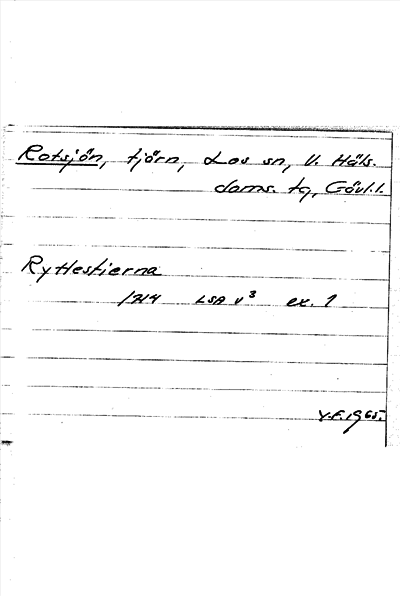 Rotsjön, tjörn, Los sn, V. Häls.
doms. tg, Gävl. l.
Ryttestierna
1714 LSA v³ ex. 1
Y.F. 1965.